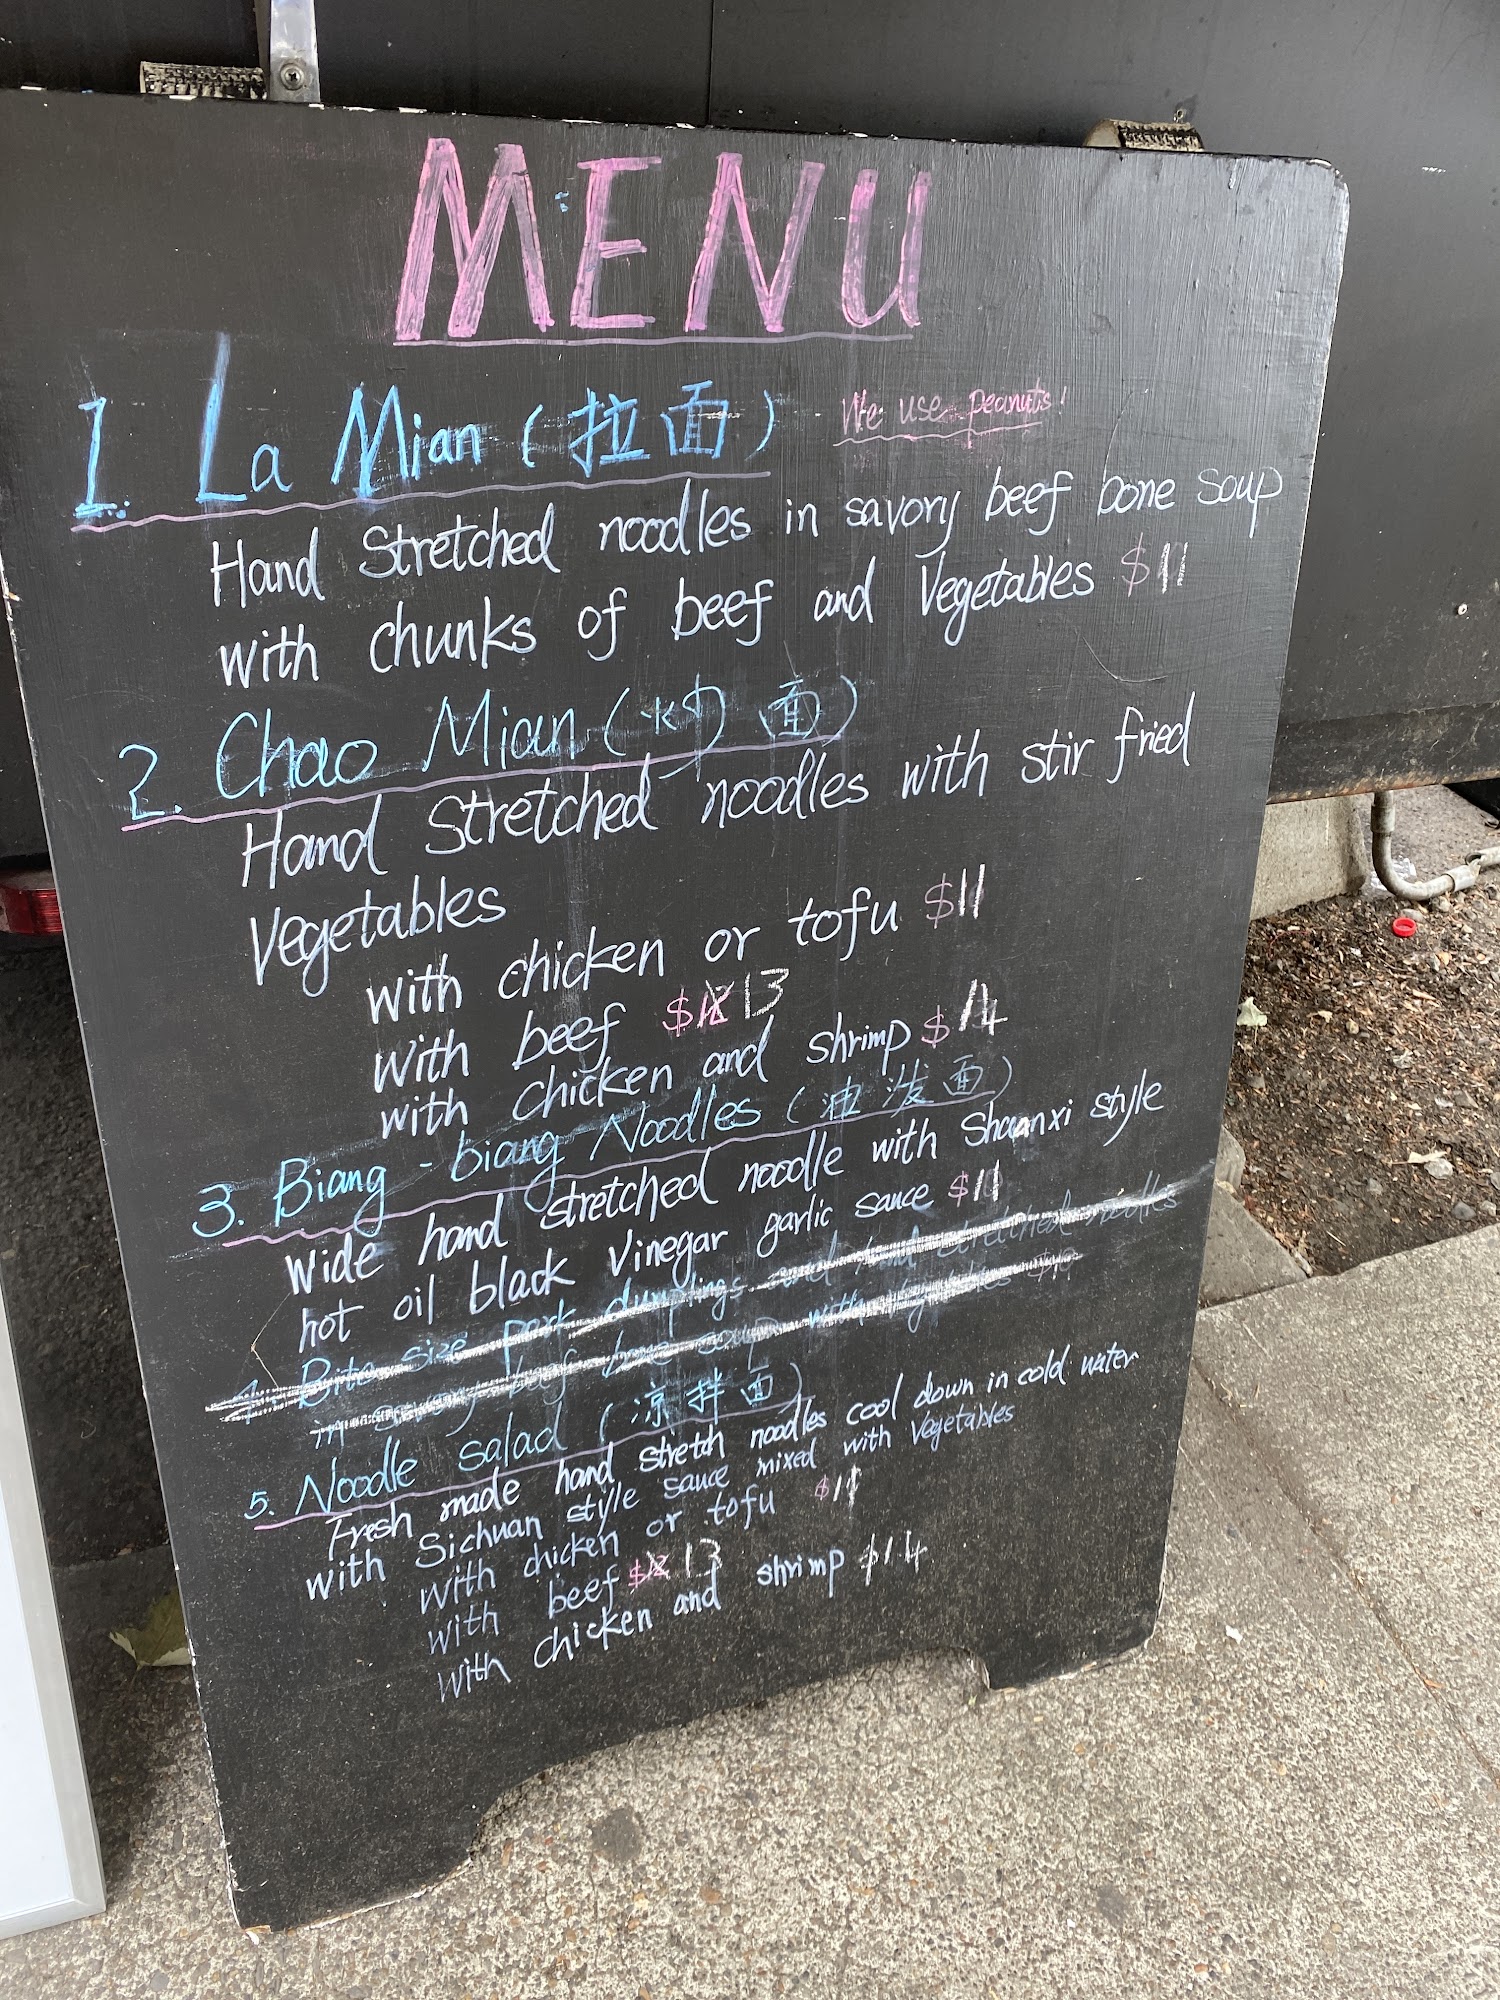 MENU
1. La Mian (拉面) We use peanuts!
Hand Stretched noodles in savory beef bone soup
with chunks of beef and Vegetables $11
2. Chao Mian (炒面)
Hand Stretched noodles with stir fried
Vegetables
with chicken or tofu $11
with beef $12 13
with chicken and shrimp $14
3. Biang-biang Noodles (油泼面)
Wide hand stretched noodle with Shaanxi style
hot oil black Vinegar garlic sauce $11
4. Bite size pork dumplings and hand stretched noodles
in savory beef bone soup with vegetables
5. Noodle salad (凉拌面)
Fresh made hand stretch noodles cool down in cold water
with Sichuan style sauce mixed with vegetables
with chicken or tofu $11
with beef $12 13
with chicken and shrimp $14